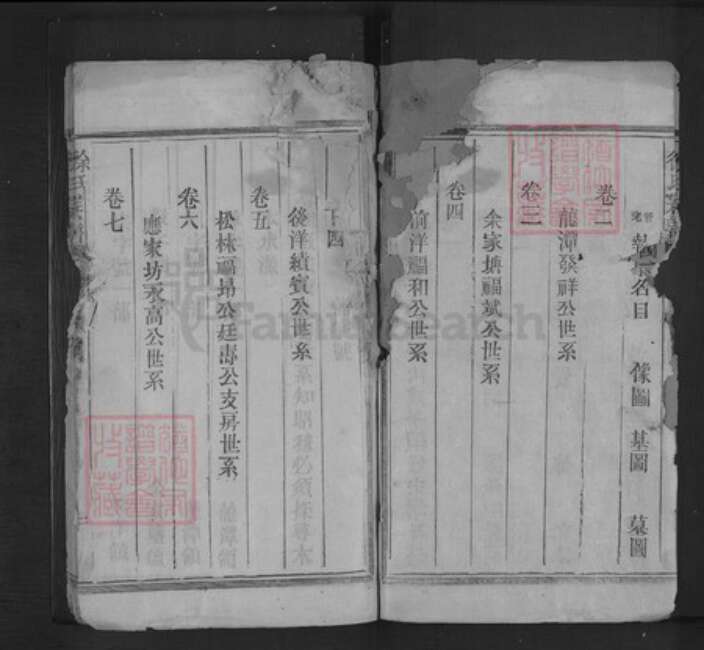 名目 像圖 基圖 墓圖
卷二
龍潭發祥公世系
卷三
余家塘福斌公世系
卷四
前洋福和公世系
下四
後洋績賓公世系
卷五
松林福昂公廷壽公支房世系
卷六
應家坊永高公世系
卷七
FamilySearch